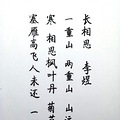 长相思 李煜
一重山 两重山 山
寒 相思枫叶丹 菊
塞雁高飞人未还 一